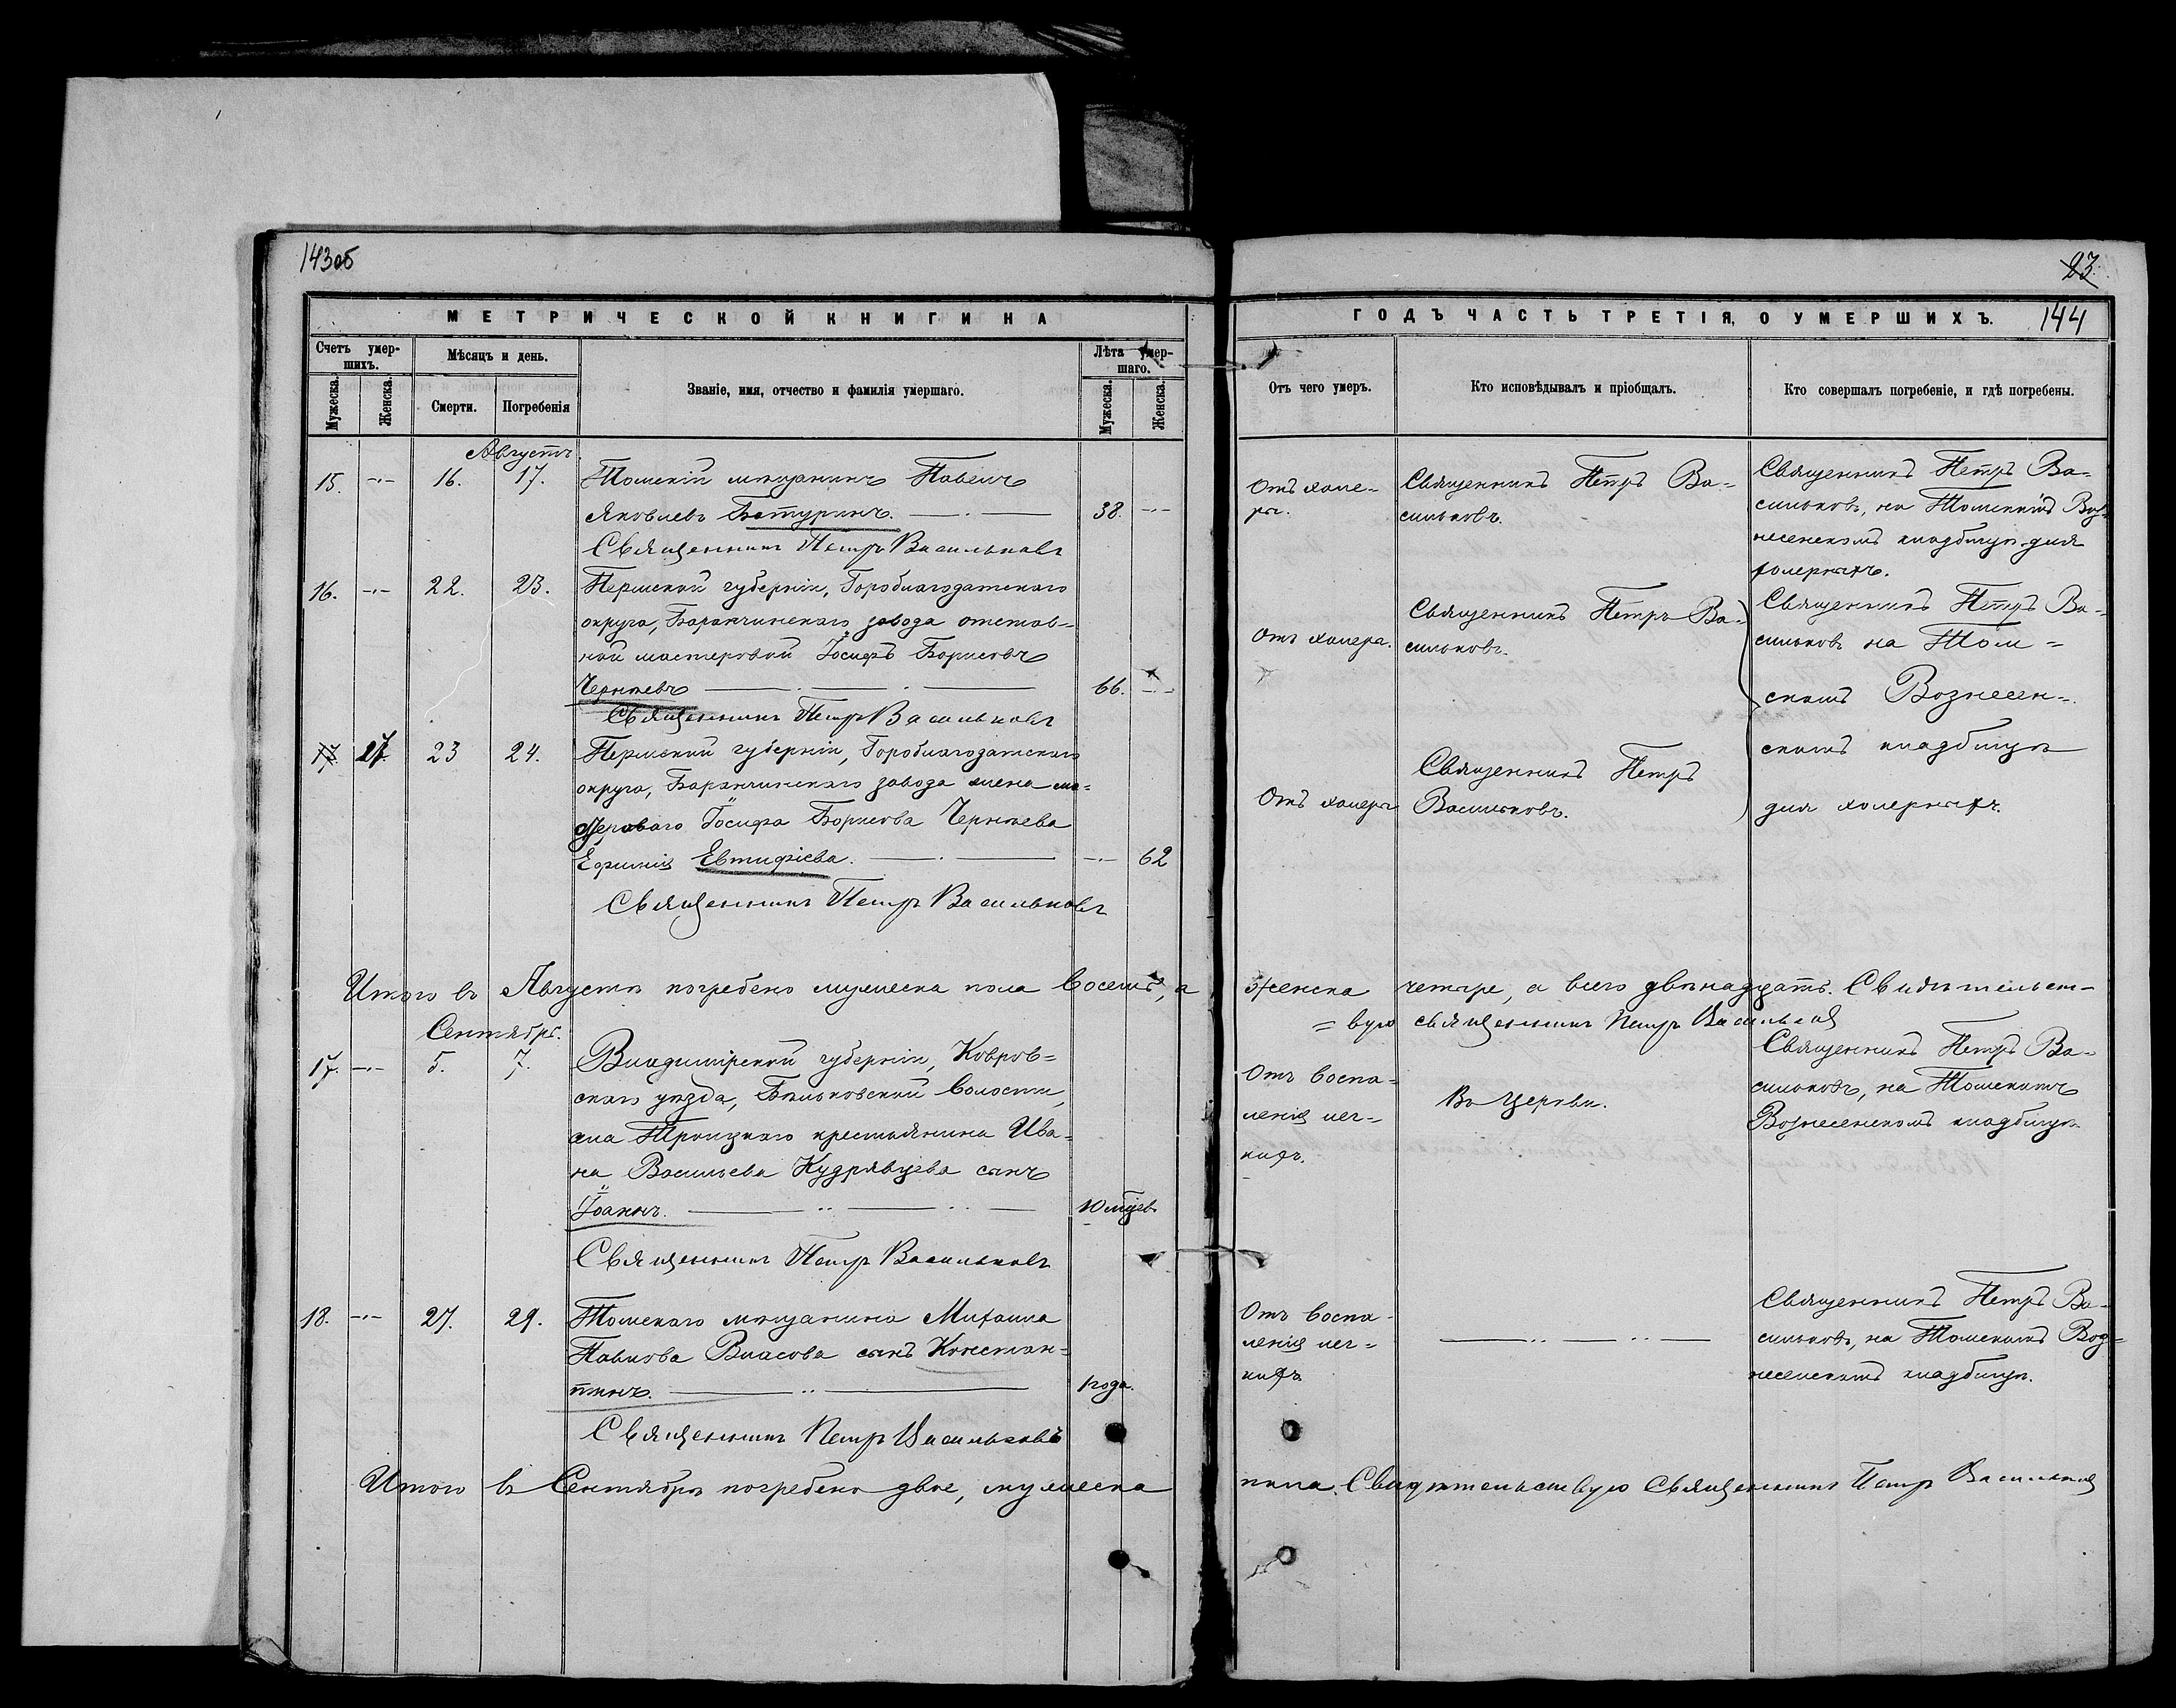 143об
МЕТРИЧЕСКОЙ КНИГИ НА
Счетъ умер-
шихъ.
Мѣсяцъ и день.
Званіе, имя, отчество и фамилія умершаго.
Лѣта умер-
шаго.
Мужеска.
Женска.
Смерти.
Погребенія
Мужеска.
Женска.
Августъ.
15. -·- 16. 17. Томскій мѣщанинъ Павелъ
Яковлевъ Батуринъ. 38. -·-
Священникъ Петръ Васильковъ
16. -·- 22. 23. Пермской губерніи, Гороблагодатскаго
округа, Баранчинскаго завода отстав-
ной мастеровой Іосифъ Борисовъ
Черняевъ 66. -·-
Священникъ Петръ Васильковъ
17. 27. 23 24. Пермской губерніи, Гороблагодатскаго
округа, Баранчинскаго завода жена ма-
стероваго Іосифа Борисова Черняева
Ефимія Евтифіева. -·- 62
Священникъ Петръ Васильковъ
Итого въ Августѣ погребено мужеска пола восемь, а
Сентябрь.
17. -·- 5. 7. Владимірской губерніи, Ковров-
скаго уѣзда, Бѣльковской волости,
села Троицкаго крестьянина Ива-
на Васильева Кудрявцева сынъ
Іоаннъ. 10 мѣсяцев.
Священникъ Петръ Васильковъ
18. -·- 27. 29. Томскаго мѣщанина Михаила
Павлова Власова сынъ Констан-
тинъ. 1 года.
Священникъ Петръ Васильковъ
Итого въ Сентябрѣ погребено двое, мужеска
23.
144
ГОДЪ ЧАСТЬ ТРЕТІЯ, О УМЕРШИХЪ.
Отъ чего умеръ.
Кто исповѣдывалъ и пріобщалъ.
Кто совершалъ погребеніе, и гдѣ погребены.
Отъ холе-
ры.
Священникъ Петръ Ва-
сильковъ.
Священникъ Петръ Ва-
сильковъ, на Томскомъ Воз-
несенскомъ кладбищѣ для
холерныхъ.
Отъ холеры.
Священникъ Петръ Ва-
сильковъ.
Священникъ Петръ Ва-
сильковъ на Том-
скомъ Вознесен-
скомъ кладбищѣ
для холерныхъ.
Отъ холеры
Священникъ Петръ
Васильковъ.
женска четыре, а всего двѣнадцать. Свидѣтельст-
=вую священникъ Петръ Васильков
Отъ воспа-
ленія лег-
кихъ.
Въ Церкви.
Священникъ Петръ Ва-
сильковъ, на Томскомъ
Вознесенскомъ кладбищѣ
Отъ воспа-
ленія лег-
кихъ
Священникъ Петръ Ва-
сильковъ, на Томскомъ Воз-
несенскомъ кладбищѣ.
пола. Свидѣтельствую Священникъ Петръ Васильков